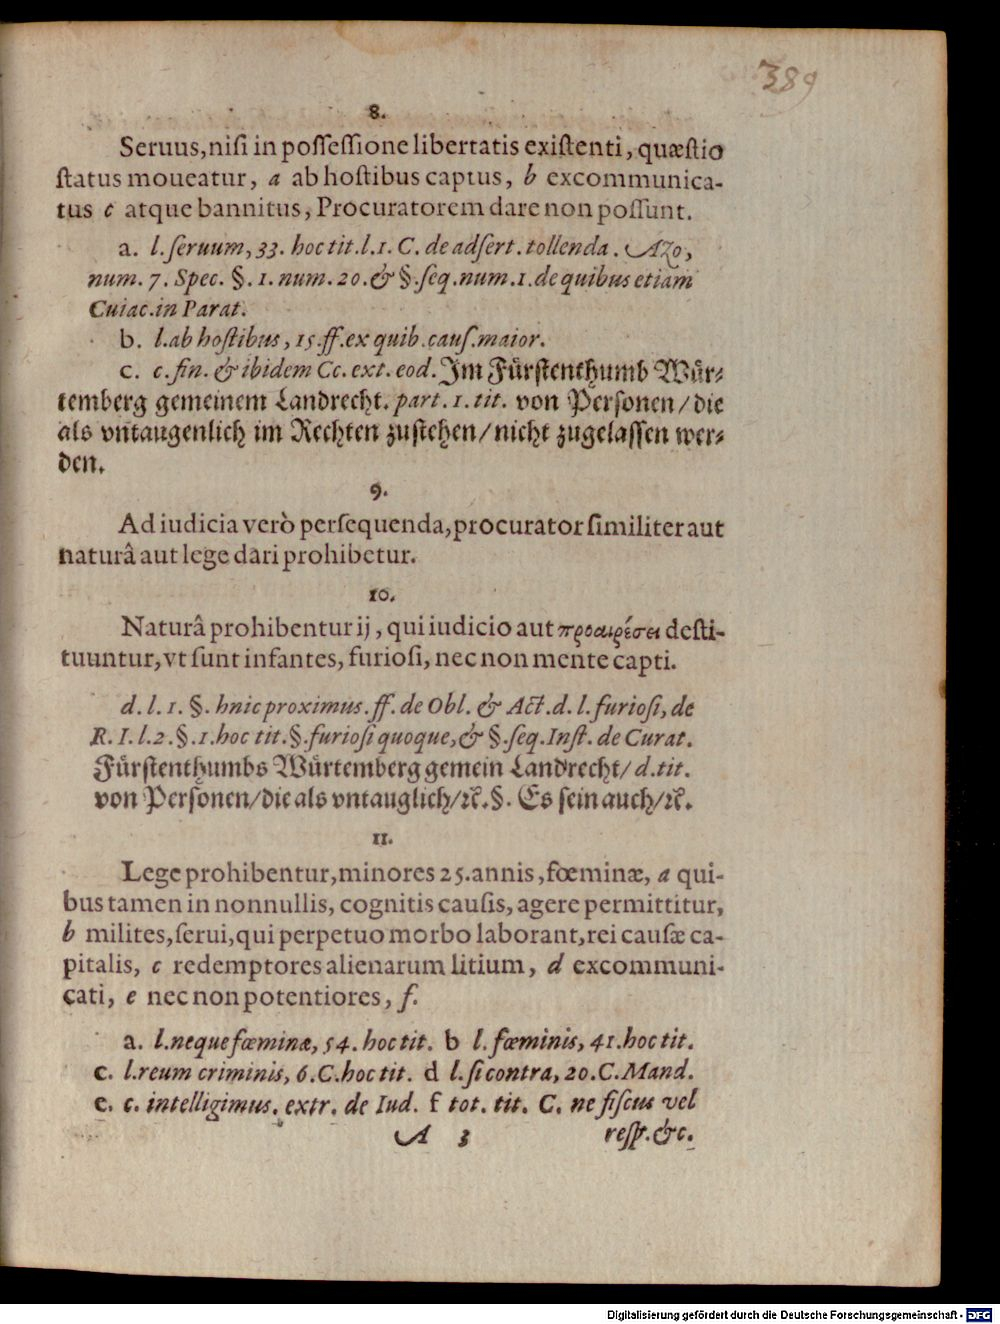 389
8.
Seruus, nisi in possessione libertatis existenti, quæstio
status moueatur, a ab hostibus captus, b excommunica-
tus c atque bannitus, Procuratorem dare non possunt.
a. l. seruum, 33. hoc tit. l. 1. C. de adsert. tollenda. Azo,
num. 7. Spec. §. 1. num. 20. & §. seq. num. 1. de quibus etiam
Cuiac. in Parat.
b. l. ab hostibus, 15. ff. ex quib. caus. maior.
c. c. fin. & ibidem Cc. ext. eod. Im Fürstenthumb Wür-
temberg gemeinem Landrecht. part. 1. tit. von Personen/die
als vntaugenlich im Rechten zustehen/nicht zugelassen wer-
den.
9.
Ad iudicia verò persequenda, procurator similiter aut
naturâ aut lege dari prohibetur.
10.
Naturâ prohibentur ij, qui iudicio aut προαιρέσει desti-
tuuntur, vt sunt infantes, furiosi, nec non mente capti.
d. l. 1. §. hnic proximus. ff. de Obl. & Act. d. l. furiosi, de
R. I. l. 2. §. 1. hoc tit. §. furiosi quoque, & §. seq. Inst. de Curat.
Fürstenthumbs Würtemberg gemein Landrecht/ d. tit.
von Personen/die als vntauglich/ꝛc. §. Es sein auch/ꝛc.
11.
Lege prohibentur, minores 25. annis, fœminæ, a qui-
bus tamen in nonnullis, cognitis causis, agere permittitur,
b milites, serui, qui perpetuo morbo laborant, rei causæ ca-
pitalis, c redemptores alienarum litium, d excommuni-
cati, e nec non potentiores, f.
a. l. neque fœminæ, 54. hoc tit. b l. fœminis, 41. hoc tit.
c. l. reum criminis, 6. C. hoc tit. d l. si contra, 20. C. Mand.
e. c. intelligimus. extr. de Iud. f tot. tit. C. ne fiscus vel
A 3 resp. &c.
Digitalisierung gefördert durch die Deutsche Forschungsgemeinschaft - DFG